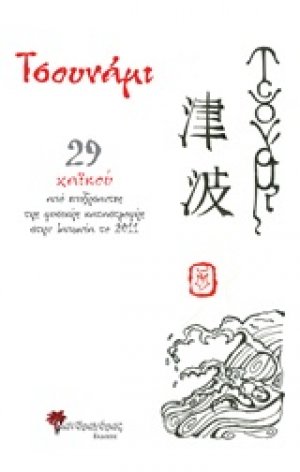 Τσουνάμι
29
χαϊκού
από επίδραση
της φυσικής καταστροφής
στην Ιαπωνία το 2011
津
波
Τσουνάμι